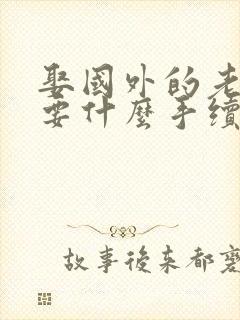 娶國外的老
要什麼手續
故事後來都